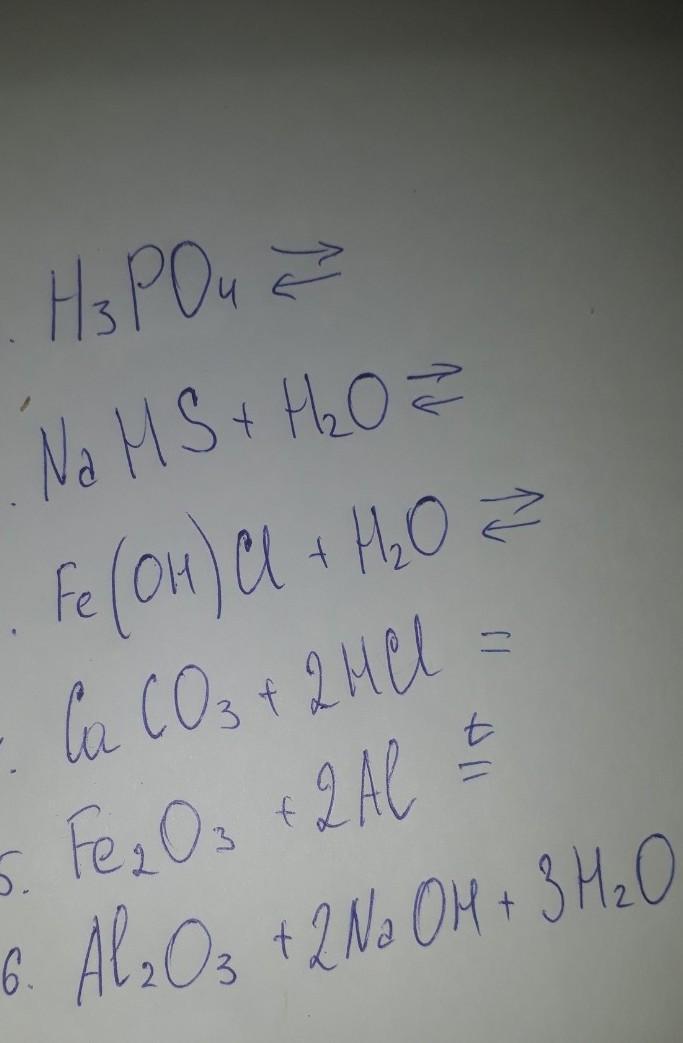 . H₃PO₄ ⇄
. NaHS + H₂O ⇄
. Fe(OH)Cl + H₂O ⇄
. CaCO₃ + 2HCl =
5. Fe₂O₃ + 2Al =ᵗ
6. Al₂O₃ + 2NaOH + 3H₂O